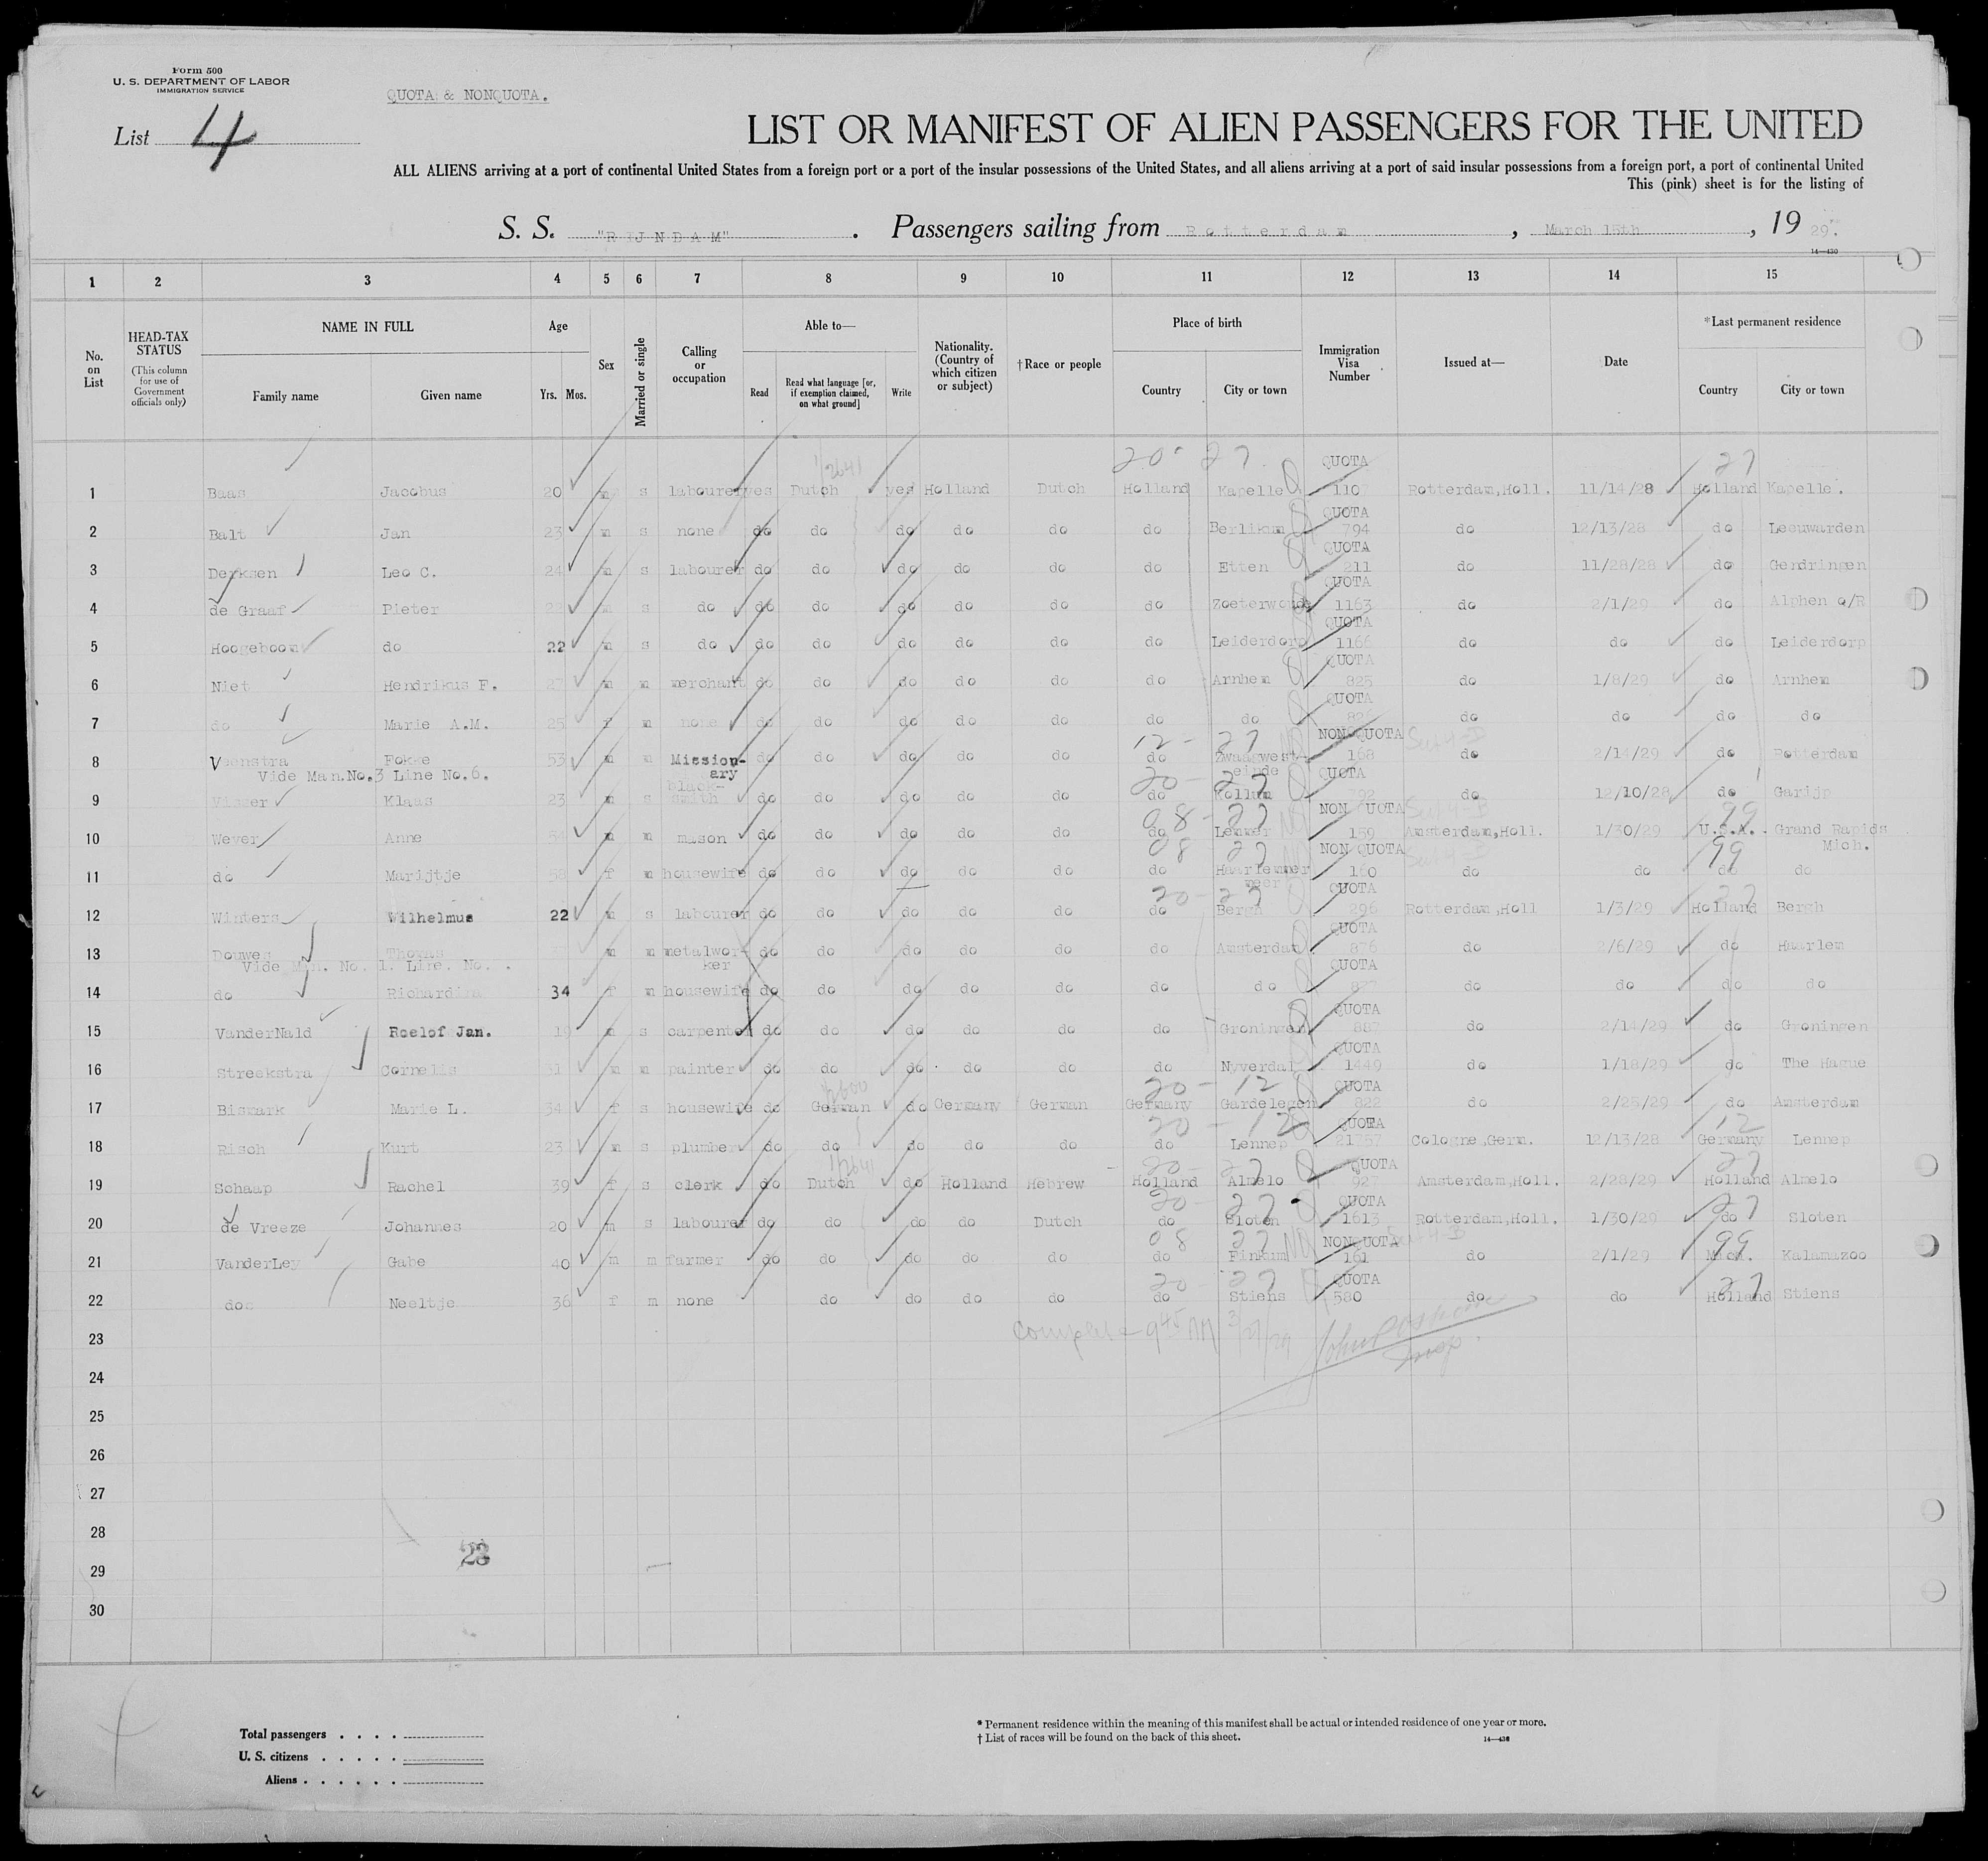 Form 500
U. S. DEPARTMENT OF LABOR
IMMIGRATION SERVICE
QUOTA & NONQUOTA.
List 4
LIST OR MANIFEST OF ALIEN PASSENGERS FOR THE UNITED
ALL ALIENS arriving at a port of continental United States from a foreign port or a port of the insular possessions of the United States, and all aliens arriving at a port of said insular possessions from a foreign port, a port of continental United
This (pink) sheet is for the listing of
S. S. "RIJNDAM" . Passengers sailing from Rotterdam , March 15th , 19 29.
14—430
1 2 3 4 5 6 7 8 9 10 11 12 13 14 15
No. on List
HEAD-TAX STATUS (This column for use of Government officials only)
NAME IN FULL Family name Given name
Age Yrs. Mos.
Sex
Married or single
Calling or occupation
Able to— Read Read what language [or, if exemption claimed, on what ground] Write
Nationality. (Country of which citizen or subject)
†Race or people
Place of birth Country City or town
Immigration Visa Number
Issued at—
Date
*Last permanent residence Country City or town
20 - 27 QUOTA 27
1 Baas Jacobus 20 m s labourer yes Dutch yes Holland Dutch Holland Kapelle 110 Rotterdam,Holl. 11/14/28 Holland Kapelle.
QUOTA
2 Balt Jan 23 m s none do do do do do do Berlikum 794 do 12/13/28 do Leeuwarden
QUOTA
3 Derksen Leo C. 24 m s labourer do do do do do do Etten 211 do 11/28/28 do Gendringen
QUOTA
4 de Graaf Pieter m s do do do do do do do Zoeterwoude 1163 do 2/1/29 do Alphen a/R
QUOTA
5 Hoogeboom do 22 m s do do do do do do do Leiderdorp 1166 do do do Leiderdorp
QUOTA
6 Niet Hendrikus F. 27 m m merchant do do do do do do Arnhem 825 do 1/8/29 do Arnhem
QUOTA
7 do Marie A.M. 25 f m none do do do do do do do do do do do
12 - 27 NON QUOTA Sec 4-D
8 Veenstra Fokke 53 m m Mission- do do do do do do Zwaagwest- 168 do 2/14/29 do Rotterdam
Vide Man.No.3 Line No.6. ary einde
20 - 27 QUOTA
black-
9 Visser Klaas 23 m s smith do do do do do do Kollum 792 do 12/10/28 do Garijp
08 - 27 NON QUOTA Sec 4-B 99
10 Wever Anne 54 m m mason do do do do do do Lemmer 159 Amsterdam,Holl. 1/30/29 U.S.A. Grand Rapids
Mich.
08 27 NON QUOTA Sec 4-B 99
11 do Marijtje 58 f m housewife do do do do do do Haarlemmer 160 do do do do
meer
20 - 27 QUOTA 27
12 Winters Wilhelmus 22 m s labourer do do do do do do Bergh 296 Rotterdam,Holl 1/3/29 Holland Bergh
QUOTA
13 Douwes Thomas m m metalwor- do do do do do do Amsterdam 876 do 2/6/29 do Haarlem
Vide Man. No. 1. Line. No. . ker
QUOTA
14 do Richardina 34 f m housewife do do do do do do do do do do do
QUOTA
15 VanderNald Roelof Jan. 19 m s carpenter do do do do do do Groningen 887 do 2/14/29 do Groningen
QUOTA
16 Streekstra Cornelis 31 m m painter do do do do do do Nyverdal 1449 do 1/18/29 do The Hague
20 - 12 QUOTA
17 Bismark Marie L. 34 f s housewife do German do Germany German Germany Gardelegen 822 do 2/25/29 do Amsterdam
20 - 12 QUOTA 12
18 Risch Kurt 23 m s plumber do do do do do do Lennep 21757 Cologne,Germ. 12/13/28 Germany Lennep
20 - 27 QUOTA 27
19 Schaap Rachel 39 f s clerk do Dutch do Holland Hebrew Holland Almelo 927 Amsterdam,Holl. 2/28/29 Holland Almelo
20 - 27 QUOTA 27
20 de Vreeze Johannes 20 m s labourer do do do do Dutch do Sloten 1613 Rotterdam,Holl. 1/30/29 do Sloten
08 27 NONQUOTA Sec 4-B 99
21 VanderLey Gabe 40 m m farmer do do do do do do Finkum 161 do 2/1/29 Mich. Kalamazoo
20 - 27 QUOTA 27
22 do Neeltje 36 f m none do do do do do Stiens 580 do do Holland Stiens
23 Complete 9 45 AM 3/27/29 Insp.
24
25
26
27
28
23
29
30
Total passengers . . . .
U. S. citizens . . . . .
Aliens . . . . . .
* Permanent residence within the meaning of this manifest shall be actual or intended residence of one year or more.
† List of races will be found on the back of this sheet.
14—430